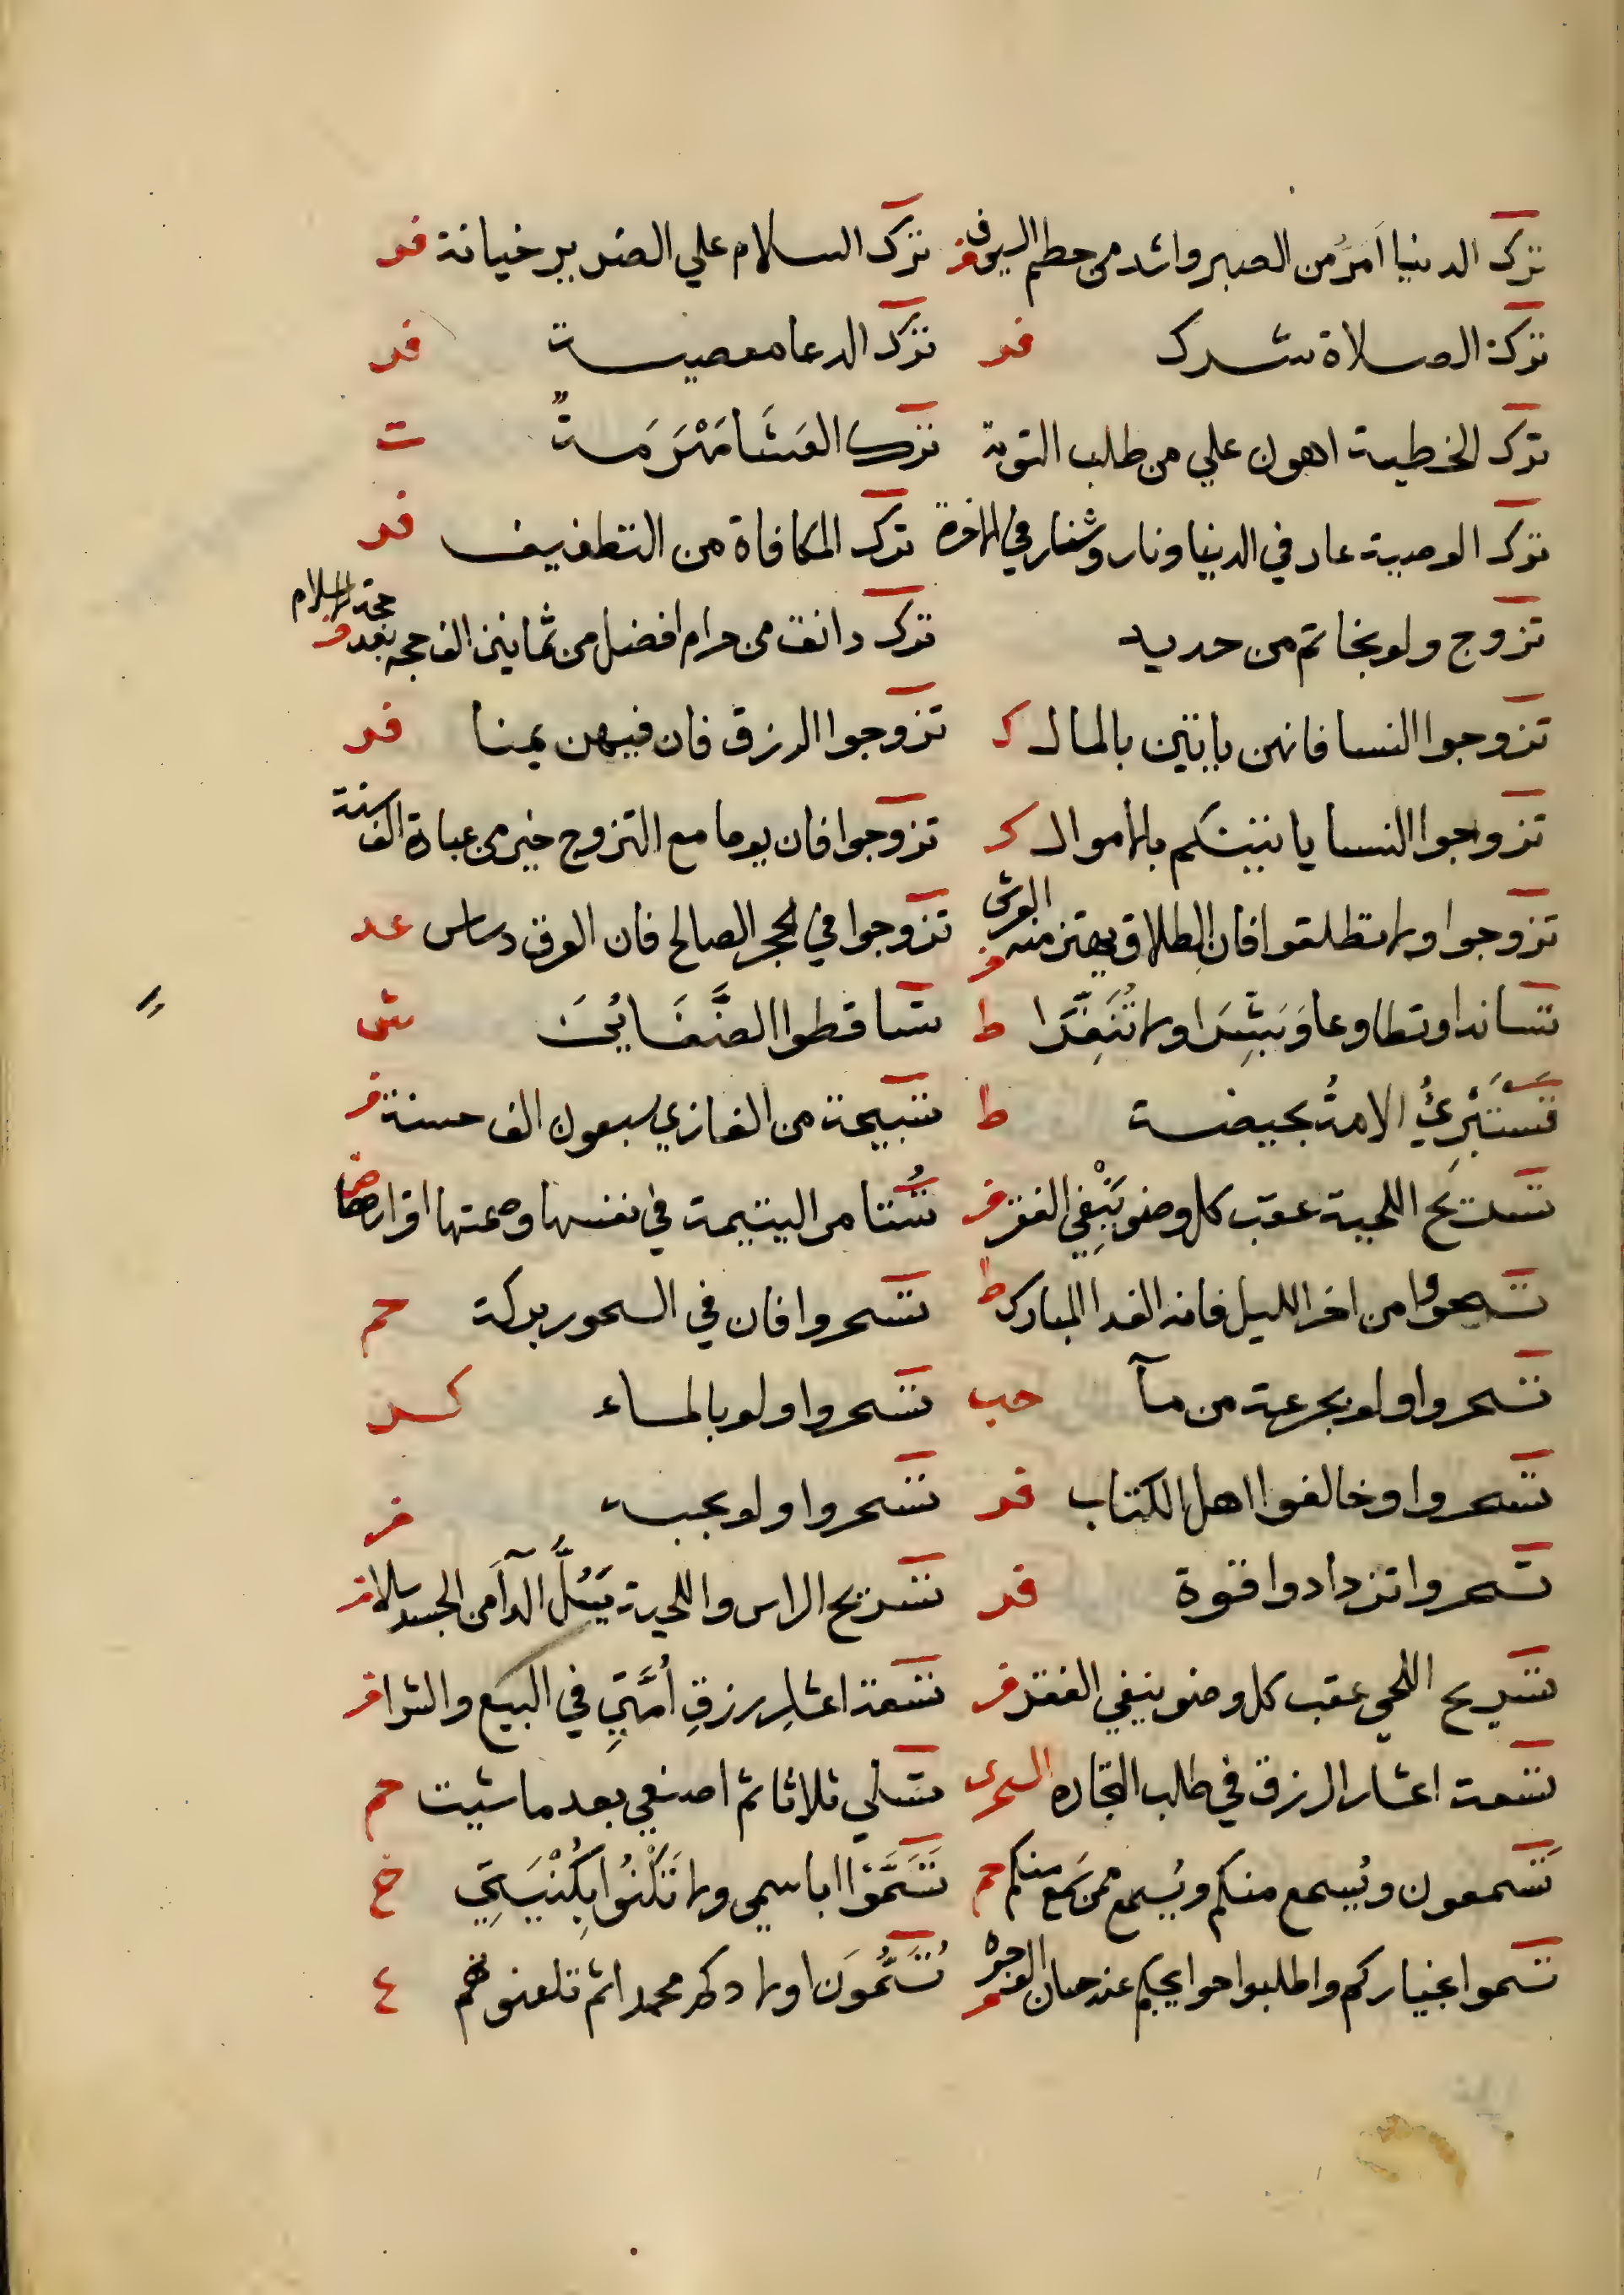 ترك الدنيا اَمَرُّ من الصبر واشد من حطم السيوف فر ترك السلام علي الضرير خيانة فر
ترك الصلاة شرك فر ترك الدعا معصية فر
ترك الخطية اهون علي من طلب التوبة ترك العَشَا مَهْرَمَةٌ ت
ترك الوصية عار في الدنيا ونار وشنار في الاخرة ترك المكافاة من التطفيف فر
تزوج ولو بخاتم من حديد ترك دانق من حرام افضل من ثمانين الف حجه بعد حجة الاسلام فر
تزوجوا النسا فانهن ياتين بالمال ك تزوجوا الزرق فان فيهن يمنا فر
تزوجوا النسا ياتينكم بالاموال ك تزوجوا فان يوما مع التزوج خير من عبادة الف سنة
تزوجوا ولا تطلقوا فان الطلاق يهتز منه العرش فر تزوجوا في الحجر الصالح فان العرق دساس عد
تساندا وتطاوعا وَبَشِّرَا ولا تُنَفِّرَا ط تساقطوا الضَّغَائِنَ ش
تَسْتَبْرِئُ الامةُ بحيضة ط تسبيحة من الغازي سبعون الف حسنة فر
تسريح اللحية عقب كل وضو يَنْفِي الفقر فر تُستامر اليتيمة في نفسها وصمتها اقرارها
تسحروا من اخر الليل فانه الغدا المبارك ط تسحروا فان في السحور بركة حم
تسحروا ولو بجرعة من مآ حب تسحروا ولو بالماء كر
تسحروا وخالفوا اهل الكتاب فر تسحروا ولو بحبة فر
تسحروا تزدادوا قوة فر تسريح الراس واللحية يَسُلُّ الدآ من الجسد سلا فر
تسريح اللحي عقب كل وضو ينفي الفقر فر تسعة اعشارِ رزقِ اُمَّتِي في البيع والشرا فر
تسعة اعشار الرزق في طلب التجاره السحرى تسلي ثلاثا ثم اصنعي بعد ما شيت حم
تَسمعون ويُسمع منكم ويُسمع ممن سَمع منكم حم تَسَمَّوْا باسمي ولا تَكَنَّوْا بِكُنْيَتِي خ
تسموا بخياركم واطلبوا حوايجكم عند حسان الوجوه فر تُسَمُّونَ اولادكم محمدا ثم تلعنونهم ع